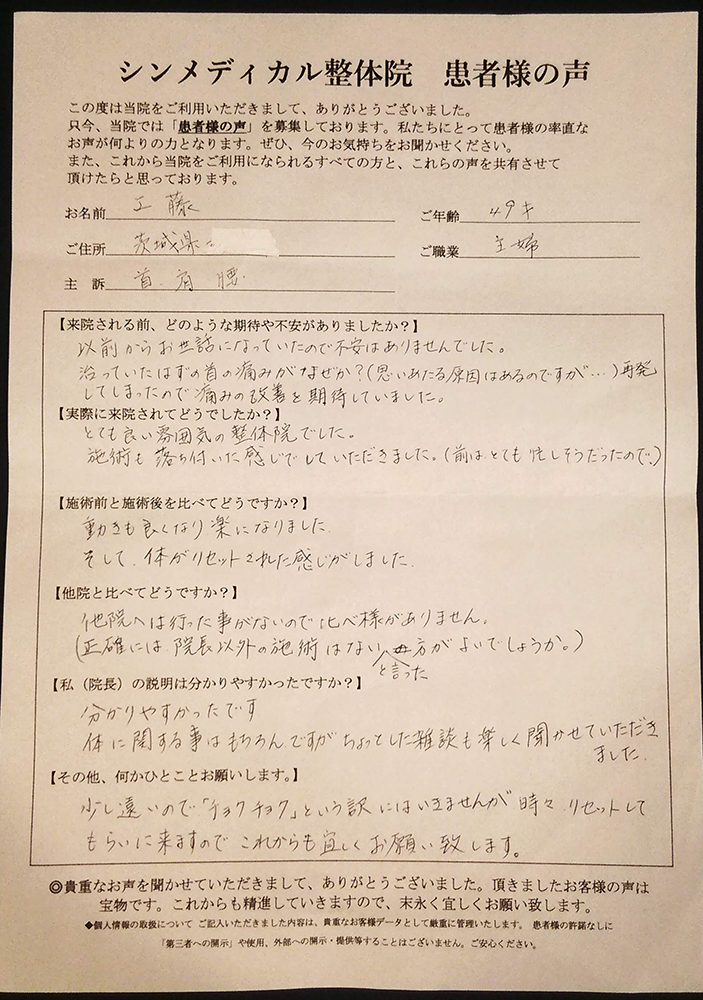 シンメディカル整体院　患者様の声
この度は当院をご利用いただきまして、ありがとうございました。
只今、当院では「患者様の声」を募集しております。私たちにとって患者様の率直な
お声が何よりの力となります。ぜひ、今のお気持ちをお聞かせください。
また、これから当院をご利用になられるすべての方と、これらの声を共有させて
頂けたらと思っております。
お名前 工藤 ご年齢 49才
ご住所 茨城県 ご職業 主婦
主　訴 首．肩．腰．
【来院される前、どのような期待や不安がありましたか？】
以前からお世話になっていたので不安はありませんでした。
治っていたはずの首の痛みがなぜか？（思いあたる原因はあるのですが…）再発
してしまったので痛みの改善を期待していました。
【実際に来院されてどうでしたか？】
とても良い雰囲気の整体院でした。
施術も落ち付いた感じでしていただきました。（前はとても忙しそうだったので．）
【施術前と施術後を比べてどうですか？】
動きも良くなり楽になりました．
そして．体がリセットされた感じがしました．
【他院と比べてどうですか？】
他院へは行った事がないので比べ様がありません。
（正確には．院長以外の施術はないと言った方がよいでしょうか。）
【私（院長）の説明は分かりやすかったですか？】
分かりやすかったです
体に関する事はもちろんですがちょっとした雑談も楽しく聞かせていただき
ました．
【その他、何かひとことお願いします。】
少し遠いので「チョクチョク」という訳にはいきませんが時々．リセットして
もらいに来ますのでこれからも宜しくお願い致します。
◎貴重なお声を聞かせていただきまして、ありがとうございました。頂きましたお客様の声は
宝物です。これからも精進していきますので、末永く宜しくお願い致します。
◆個人情報の取扱について ご記入いただきました内容は、貴重なお客様データとして厳重に管理いたします。 患者様の許諾なしに
「第三者への開示」や使用、外部への開示・提供等することはございません。ご安心ください。